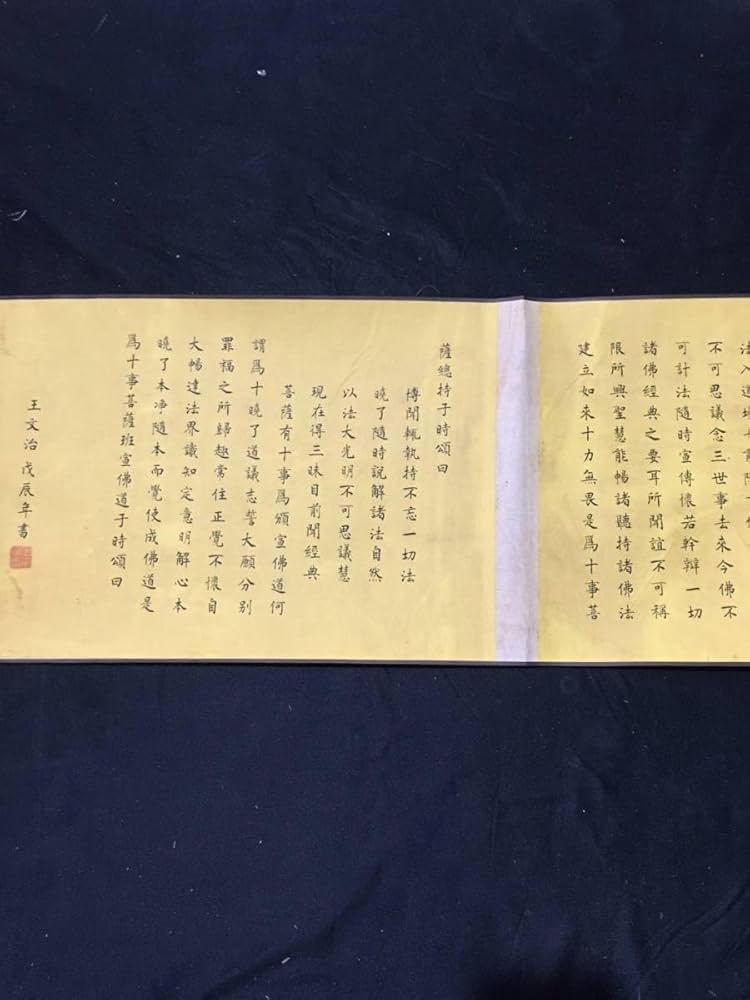 不可思議念三世事去來今佛不
可計法隨時宣傳懷若幹辯一切
諸佛經典之要耳所聞誼不可稱
限所興聖慧能暢諸聽持諸佛法
建立如來十力無畏是爲十事菩
薩總持于時頌曰
博聞輒執持不忘一切法
曉了隨時說解諸法自然
以法大光明不可思議慧
現在得三昧目前聞經典
菩薩有十事爲頒宣佛道何
謂爲十曉了道議志誓大願分別
罪福之所歸趣常住正覺不懷自
大暢達法界識知定意明解心本
曉了本净隨本而覺使成佛道是
爲十事菩薩班宣佛道于時頌曰
王文治戊辰年書